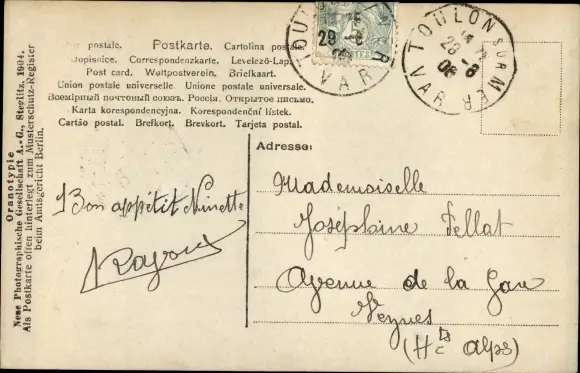 postale. Postkarte. Cartolina postale
Dopisnice. Correspondenzkarte. Levelező-Lap
Post card. Weltpostverein. Briefkaart.
Union postale universelle. Unione postale universale.
Всемірный почтовый союзъ. Россія. Открытое письмо.
Karta korespondencyjna. Korespondenční lístek.
Cartão postal. Brefkort. Brevkort. Tarjeta postal.
Oranotypie
Neue Photographische Gesellschaft A.-G., Steglitz, 1904.
Als Postkarte offen hinterlegt zum Musterschutz-Register
beim Amtsgericht Berlin.
TOULON
VAR
TOULON SUR MER
28 -8
06
VAR
Bon appétit Ninette
Adresse:
Mademoiselle
Joséphine Pellat
Avenue de la Gare
Veynes
(Htes Alps)